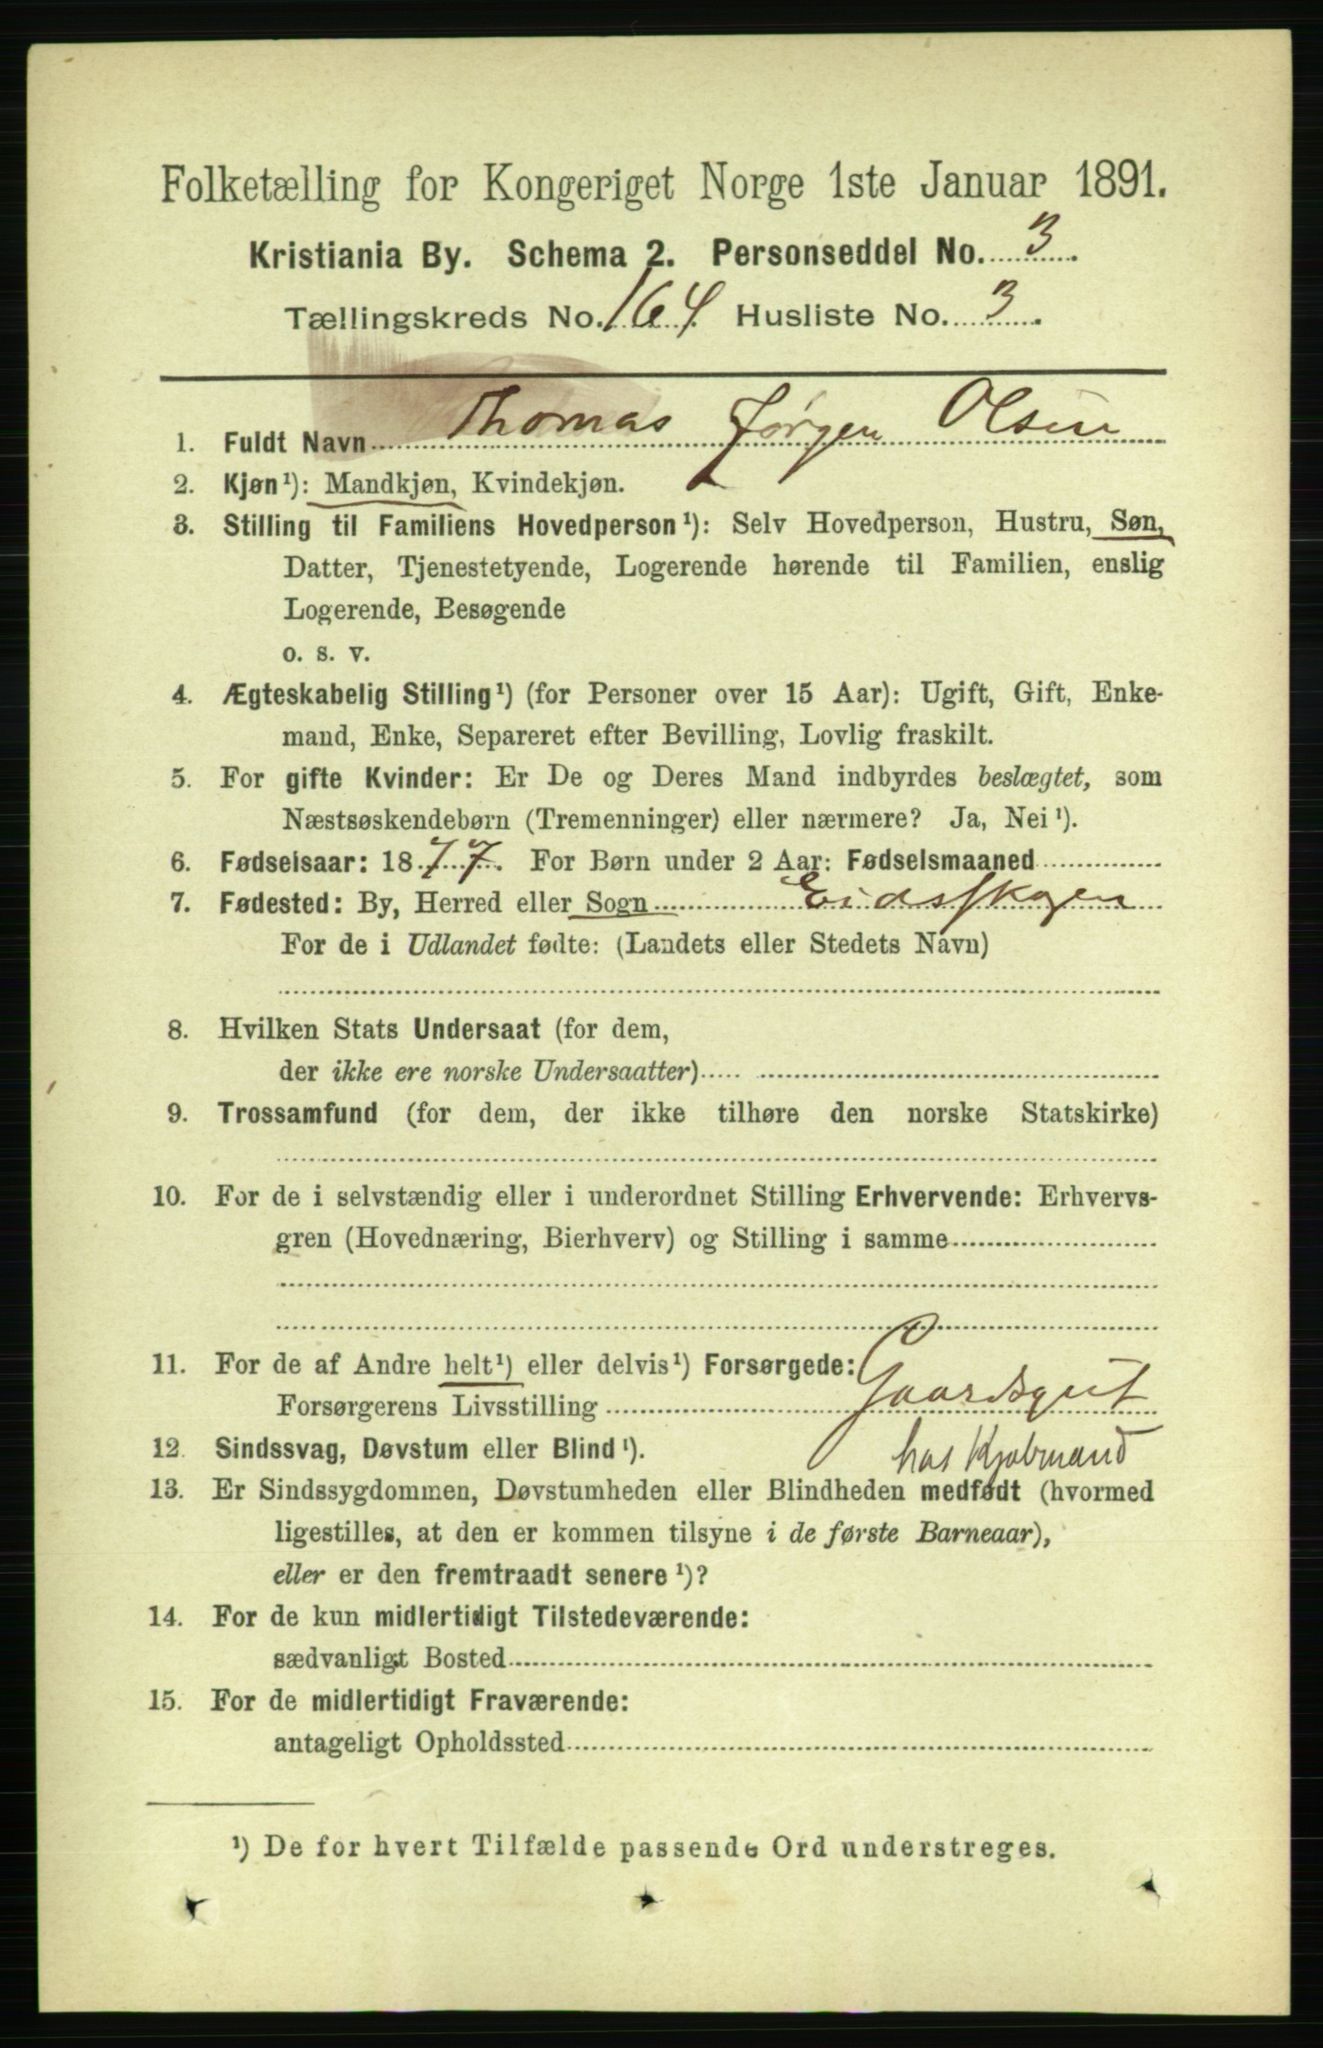 Folketælling for Kongeriget Norge 1ste Januar 1891.
Kristiania By. Schema 2. Personseddel No. 3.
Tællingskreds No. 164. Husliste No. 3.
1. Fuldt Navn Thomas Jørgen Olsen
2. Kjøn¹): Mandkjøn, Kvindekjøn.
3. Stilling til Familiens Hovedperson¹): Selv Hovedperson, Hustru, Søn,
Datter, Tjenestetyende, Logerende hørende til Familien, enslig
Logerende, Besøgende
o. s. v.
4. Ægteskabelig Stilling¹) (for Personer over 15 Aar): Ugift, Gift, Enke-
mand, Enke, Separeret efter Bevilling, Lovlig fraskilt.
5. For gifte Kvinder: Er De og Deres Mand indbyrdes beslægtet, som
Næstsøskendebørn (Tremenninger) eller nærmere? Ja, Nei¹).
6. Fødselsaar: 1877. For Børn under 2 Aar: Fødselsmaaned
7. Fødested: By, Herred eller Sogn Eidsskogen
For de i Udlandet fødte: (Landets eller Stedets Navn)
8. Hvilken Stats Undersaat (for dem,
der ikke ere norske Undersaatter)
9. Trossamfund (for dem, der ikke tilhøre den norske Statskirke)
10. For de i selvstændig eller i underordnet Stilling Erhvervende: Erhvervs-
gren (Hovednæring, Bierhverv) og Stilling i samme
11. For de af Andre helt¹) eller delvis¹) Forsørgede:
Forsørgerens Livsstilling Gaardsgut
12. Sindssvag, Døvstum eller Blind¹). hos Kjøbmand
13. Er Sindssygdommen, Døvstumheden eller Blindheden medfødt (hvormed
ligestilles, at den er kommen tilsyne i de første Barneaar),
eller er den fremtraadt senere¹)?
14. For de kun midlertidigt Tilstedeværende:
sædvanligt Bosted
15. For de midlertidigt Fraværende:
antageligt Opholdssted
¹) De for hvert Tilfælde passende Ord understreges.